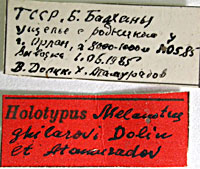 ТССР, Б. Балханы
ущелье с родником у
г. Орлан, 8000-1000м 20.05.85
1.06.1985
В. Долин, Х. Атамурадов
Holotypus Melanotus
ghilarovi Dolin
et Atamuradov